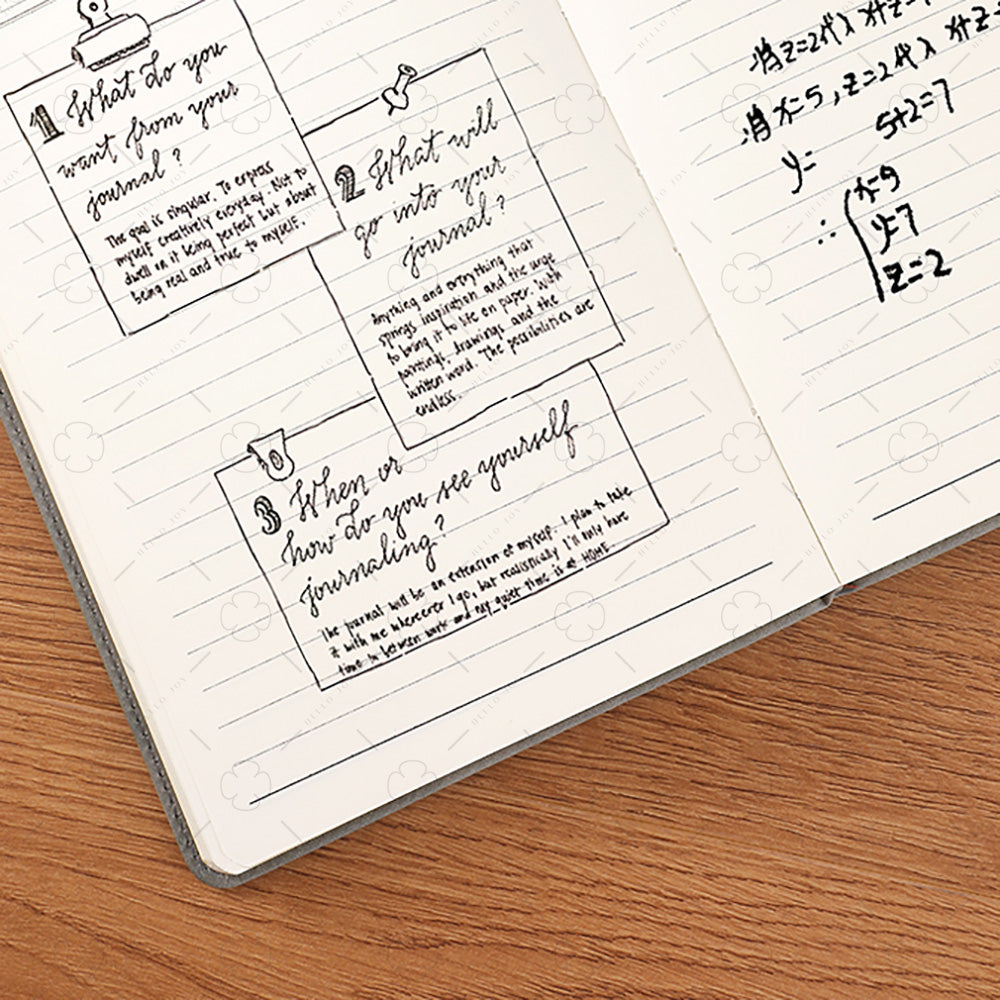 1 What do you
want from your
journal?
The goal is singular. To express
myself creatively everyday. Not to
dwell on it being perfect but about
being real and true to myself.
2 What will
go into your
journal?
Anything and everything that
springs inspiration and the urge
to bring it to life on paper. With
paintings, drawings and the
written word. The possibilities are
endless.
3 When or
how do you see yourself
journaling?
The journal will be an extension of myself. I plan to take
it with me wherever I go, but realistically I'll only have
time in between work and my quiet time is at HOME
将z=2代入 x+z=
将x=5,z=2代入 x+z=
5+2=7
y=
∴ x=5
y=7
z=2
HELLO JOY